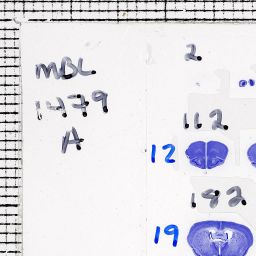 MBL
1479
A
2.
112
12
182
19